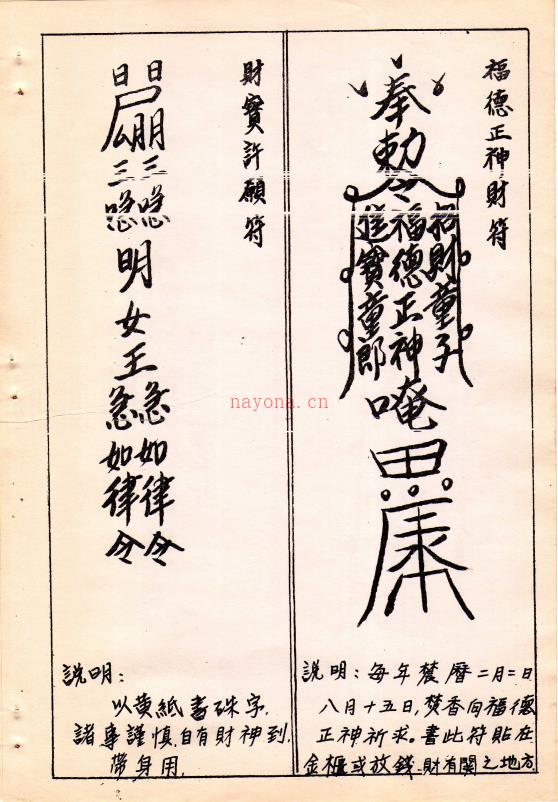 福德正神財符
奉勅令
招財童子
福德正神
進寶童郎
唵
説明：每年農曆二月二日
八月十五日，焚香向福德
正神祈求。書此符貼在
金櫃或放錢財有関之地方
財寶許願符
日日
明女王
急急如律令
如律令
説明：
以黄紙書硃字，
諸事謹慎自有財神到，
帶身用。
nayona.cn